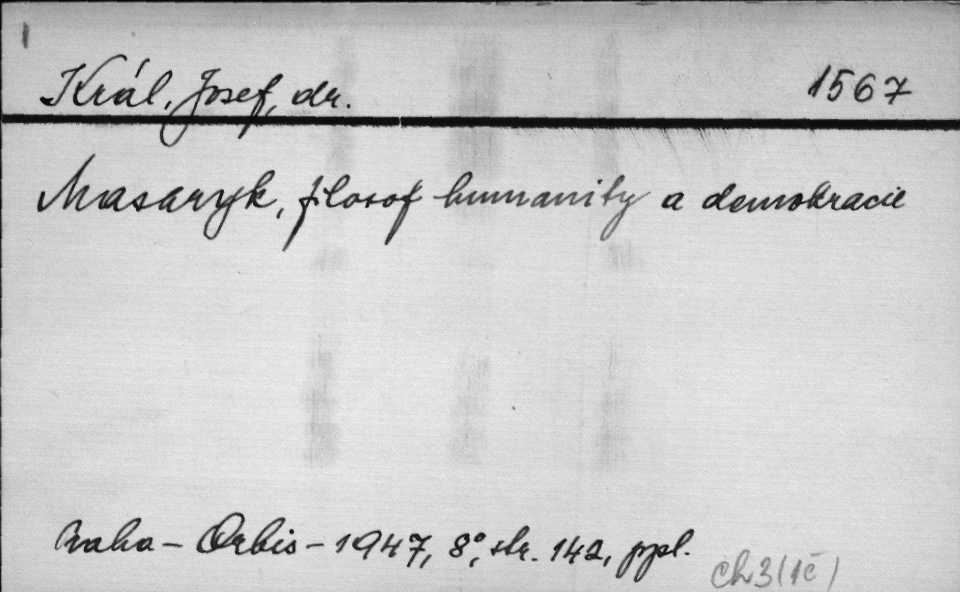 Král, Josef, dr. 1567
Masaryk, filosof humanity a demokracie
Praha - Orbis - 1947, 8°, str. 142, ppl.
Ch3(1č)